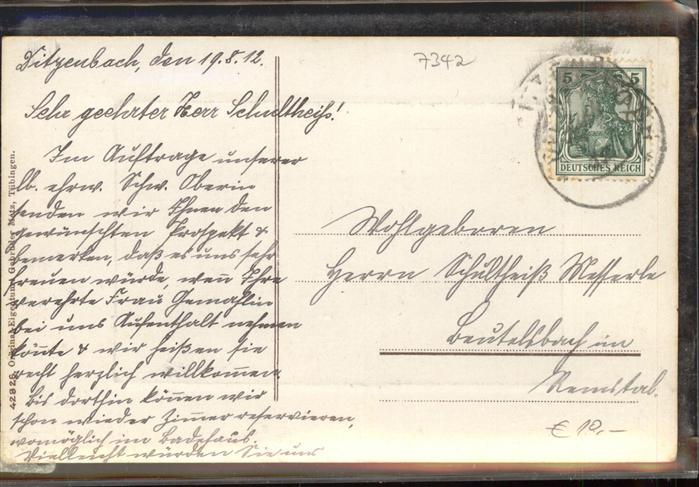 Ditzenbach, den 19.8.12.
7342
Sehr geehrter Herr Schultheiß!
Im Auftrage unserer
lb. ehrw. Schw. Oberin
senden wir Ihnen den
gewünschten Prospekt &
bemerken, daß es uns sehr
freuen würde, wenn Ihre
verehrte Frau Gemahlin
bei uns Aufenthalt nehmen
könnte & wir heißen sie
recht herzlich willkommen.
Bis dorthin können wir
schon wieder Zimmer reservieren,
womöglich im Badehaus.
Vielleicht würden Sie uns
42925 Original-Eigentum Gebrüder Metz, Tübingen.
5 5
DEUTSCHES REICH
Wohlgeboren
Herrn Schultheiß Messerle
Beutelsbach im
Remstal.
€ 10,-